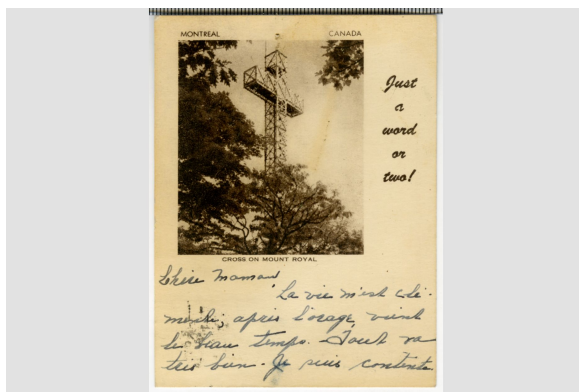 MONTREAL CANADA
Just
a
word
or
two!
CROSS ON MOUNT ROYAL
Chère Maman
La vie m'est clé-
mente, après l'orage, vient
le beau temps. Tout va
très bien. Je suis contente